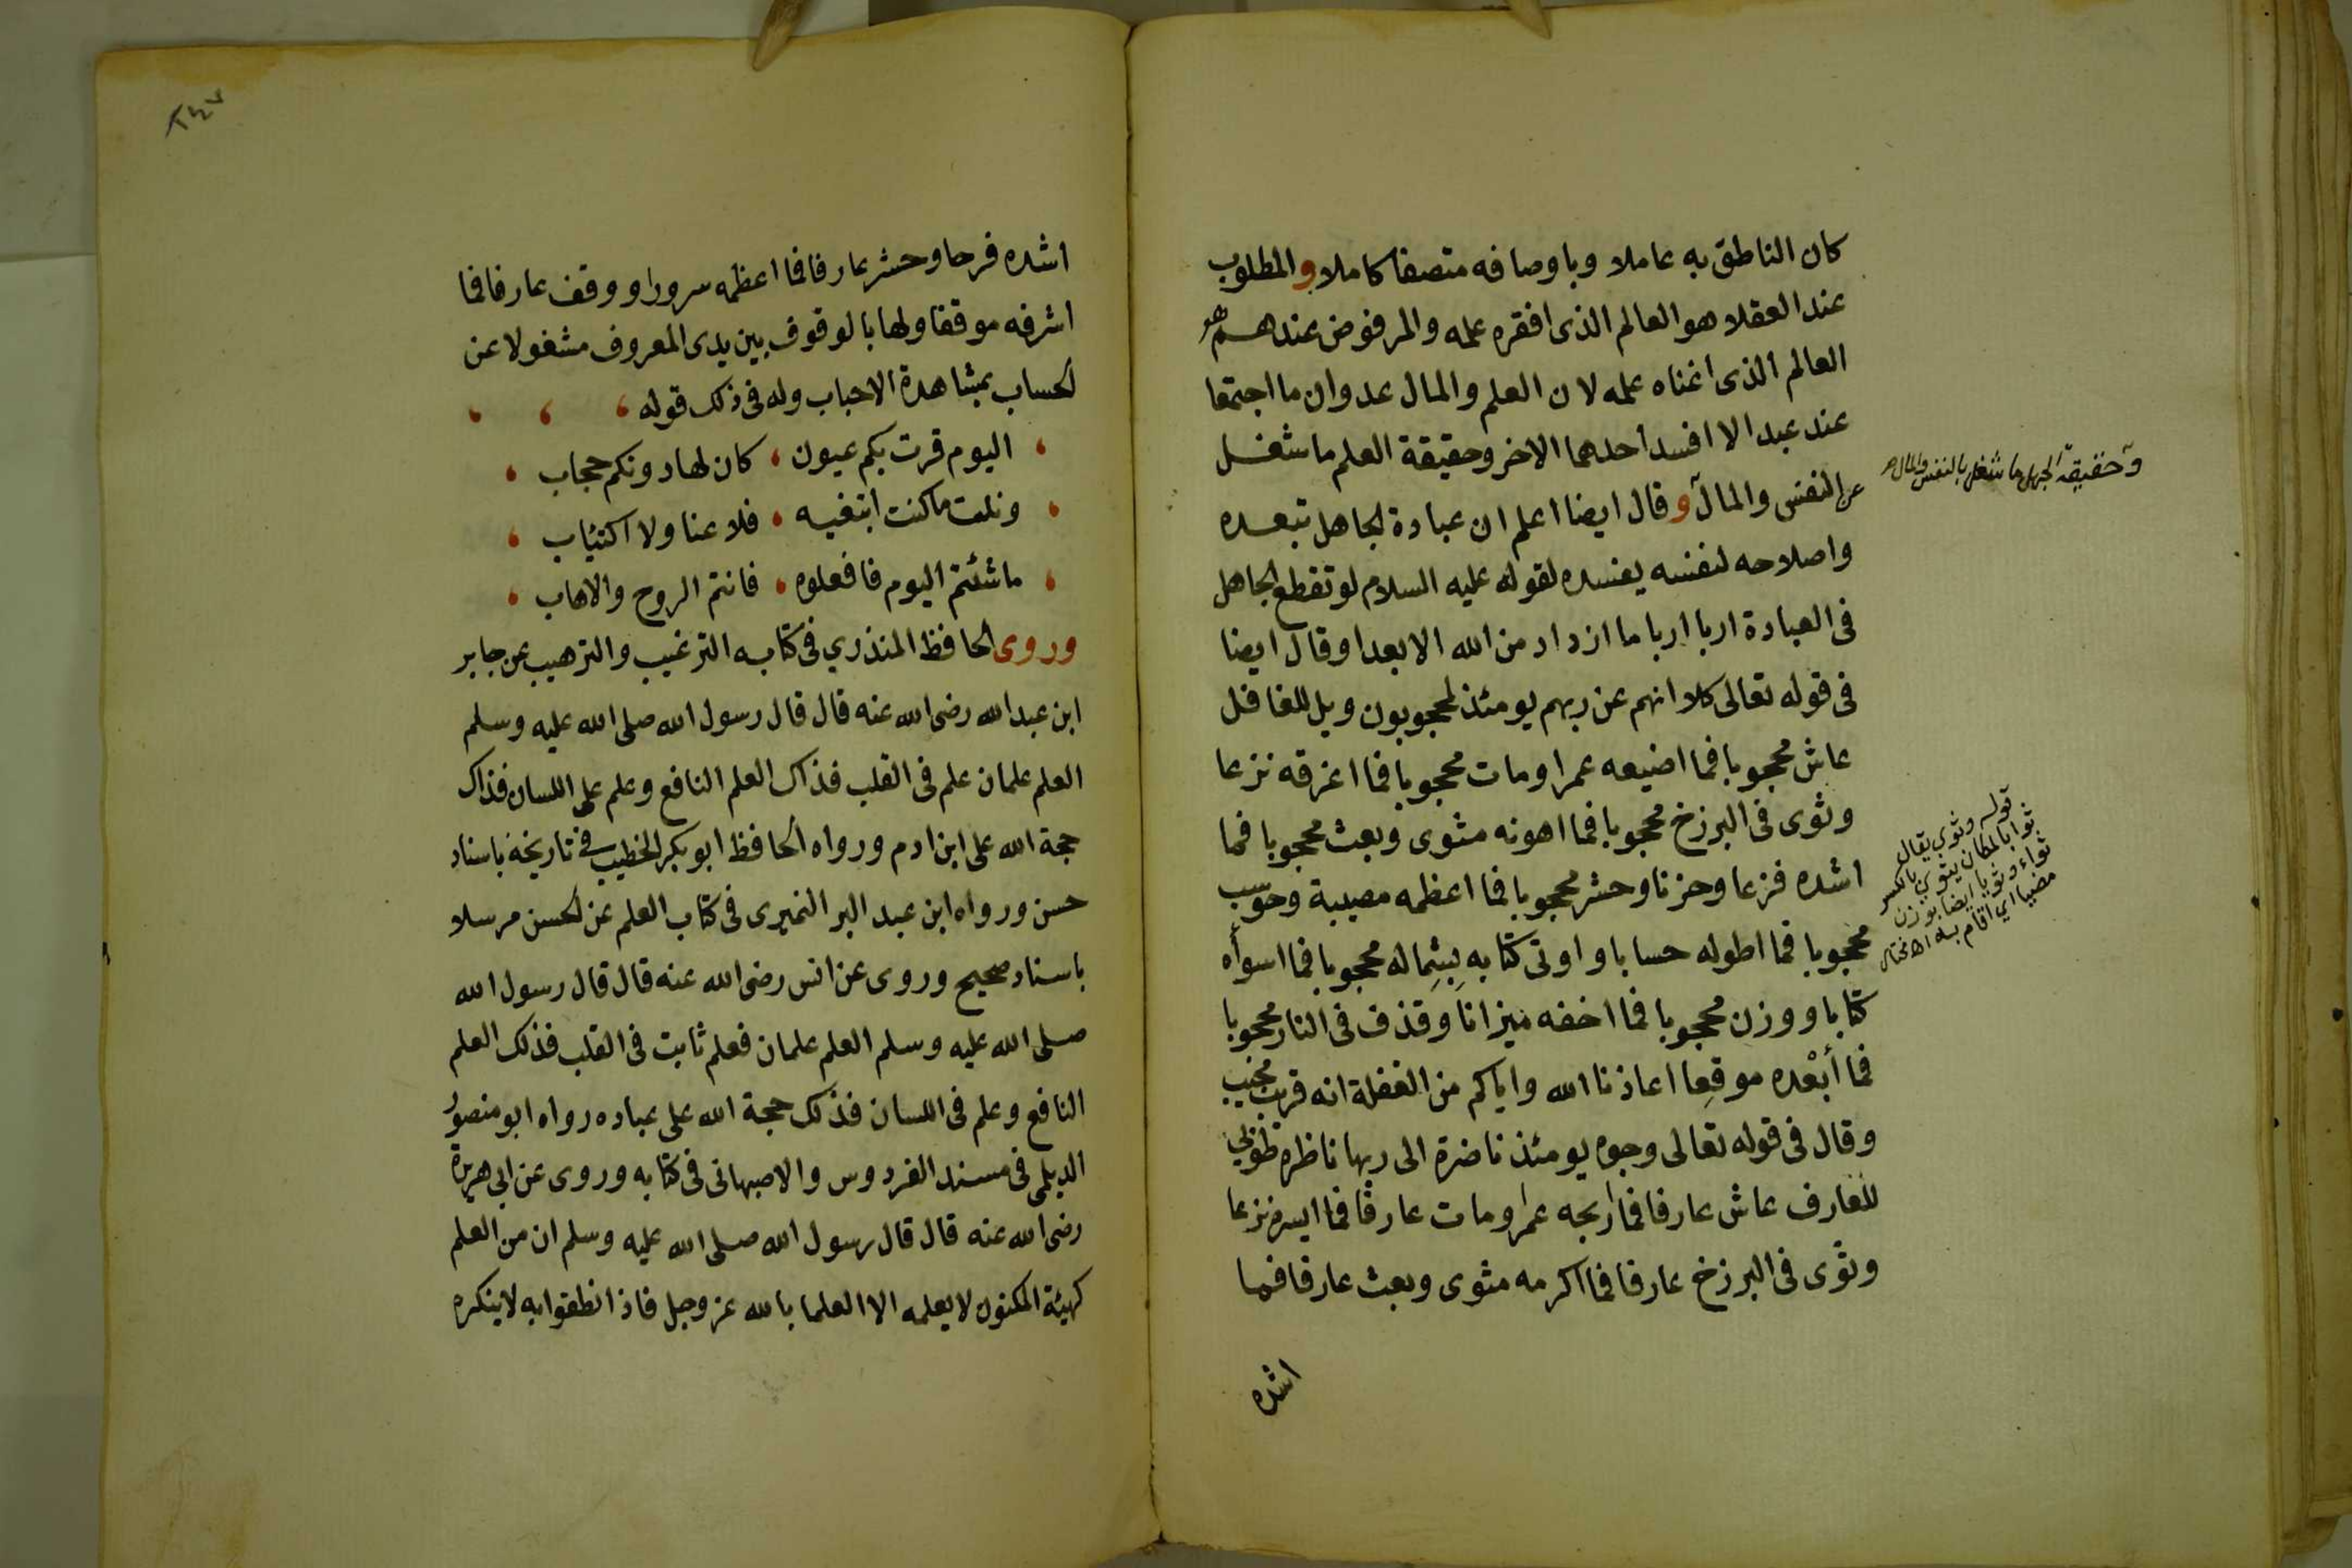 كان الناطق به عاملا وباوصافه متصفا كاملا والمطلوب
عند العقلا هو العالم الذى افقره علمه والمرفوض عندهم هو
العالم الذى اغناه علمه لان العلم والمال عدوان ما اجتمعا
عند عبد الا افسد احدهما الاخر وحقيقة العلم ما شغل
عن النفس والمال وقال ايضا اعلم ان عبادة الجاهل تبعده
واصلاحه لنفسه يفسده لقوله عليه السلام لو تقطع الجاهل
فى العبادة اربا اربا ما ازداد من الله الا بعدا وقال ايضا
فى قوله تعالى كلا انهم عن ربهم يومئذ لمحجوبون ويل للغافل
عاش محجوبا فما اضيعه عمرا ومات محجوبا فما اغرقه نزعا
وثوى فى البرزخ محجوبا فما اهونه مثوى وبعث محجوبا فما
اشده فزعا وحزنا وحشر محجوبا فما اعظمه مصيبة وحوسب
محجوبا فما اطوله حسابا واوتى كتابه بشماله محجوبا فما اسوأه
كتابا ووزن محجوبا فما اخفه ميزانا وقذف فى النار محجوبا
فما أبعْده موقعا اعاذنا الله واياكم من الغفلة انه قريب مجيب
وقال فى قوله تعالى وجوه يومئذ ناضرة الى ربها ناظرة طوبى
للعارف عاش عارفا فما اربحه عمرا ومات عارفا فما ايسره نزعا
وثوى فى البرزخ عارفا فما اكرمه مثوى وبعث عارفا فما
اشده
وحقيقة الجهل ما شغل بالنفس والمال صح
قوله وثوي يقال
ثوا بالمكان يثوي بالكسر
ثواء وثويا ايضا بوزن
مضيا اي اقام به اه مختار
٢٤٧
اشده فرحا وحشر عارفا فما اعظمه سرورا ووقف عارفا فما
اشرفه موقفا ولها بالوقوف بين يدى المعروف مشغولا عن
الحساب بمشاهدة الاحباب وله فى ذلك قوله
اليوم قرت بكم عيون ، كان لها دونكم حجاب
ونلت ما كنت ابتغيه ، فلا عنا ولا اكتئاب
ما شئتم اليوم فافعلوه ، فانتم الروح والاهاب
وروى الحافظ المنذري فى كتابه الترغيب والترهيب عن جابر
ابن عبد الله رضى الله عنه قال قال رسول الله صلى الله عليه وسلم
العلم علمان علم فى القلب فذاك العلم النافع وعلم على اللسان فذاك
حجة الله على ابن ادم ورواه الحافظ ابو بكر الخطيب في تاريخه باسناد
حسن ورواه ابن عبد البر النميرى فى كتاب العلم عن الحسن مرسلا
باسناد صحيح وروى عن انس رضى الله عنه قال قال رسول الله
صلى الله عليه وسلم العلم علمان فعلم ثابت فى القلب فذلك العلم
النافع وعلم فى اللسان فذلك حجة الله على عباده رواه ابو منصور
الديلمى فى مسند الفردوس والاصبهانى فى كتابه وروى عن ابى هريرة
رضى الله عنه قال قال رسول الله صلى الله عليه وسلم ان من العلم
كهيئة المكنون لا يعلمه الا العلما بالله عز وجل فاذا نطقوا به لا ينكره